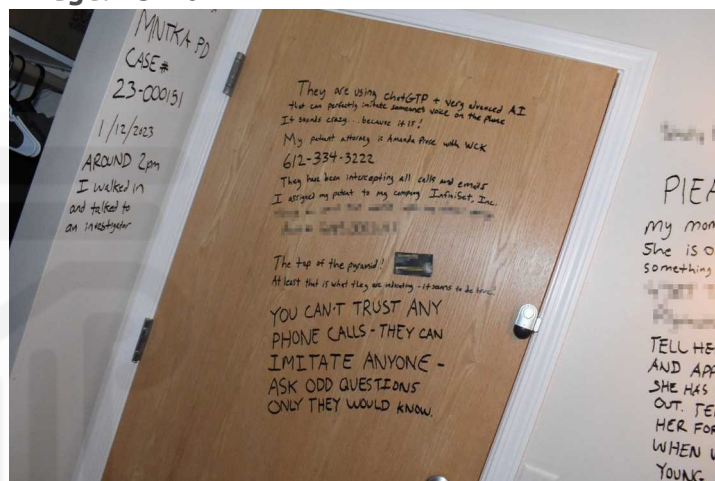 MNTKA PD
CASE #
23-000151
1/12/2023
AROUND 2pm
I walked in
and talked to
an investigator
They are using ChatGTP + very advanced AI
that can perfectly imitate someone's voice on the phone
It sounds crazy... because it is!
My patent attorney is Amanda Prose with WCK
612-334-3222
They have been intercepting all calls and emails
I assigned my patent to my company InfiniSet, Inc.
The top of the pyramid!
At least that is what they are indicating - it seems to be true!
YOU CAN'T TRUST ANY
PHONE CALLS - THEY CAN
IMITATE ANYONE -
ASK ODD QUESTIONS
ONLY THEY WOULD KNOW.
my mom
She is o
something
TELL HE
AND APP
SHE HAS
OUT. TE
HER FOR
WHEN W
YOUNG